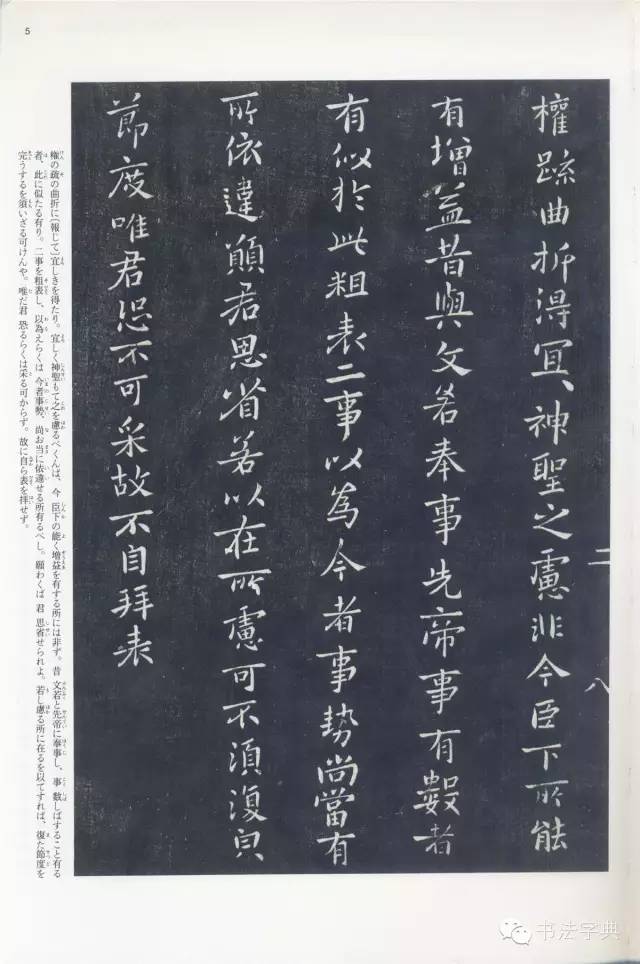 5
權疏曲折得冝、神聖之慮非今臣下所能
二 八
有增益昔與文若奉事先帝事有數者
有似於此粗表二事以為今者事勢尚當有
所依違願君思省若以在所慮可不須復皃
節度唯君恐不可采故不自拜表
権の疏の曲折に(報じて)宜しきを得たり。宜しく神聖もて之を慮るべくんば、今 臣下の能く増益を有する所には非ず。昔 文若と先帝に奉事し、事 数しばすること有る
者、此に似たる有り。二事を粗表し、以為えらくは 今者事勢、尚お当に依違せる所有るべし。願わくば君 思省せられよ。若し慮る所に在るを以てすれば、復た節度を
完うするを須いざる可けんや。唯だ君 恐るらくは采る可からず。故に自ら表を拝せず。
书法字典